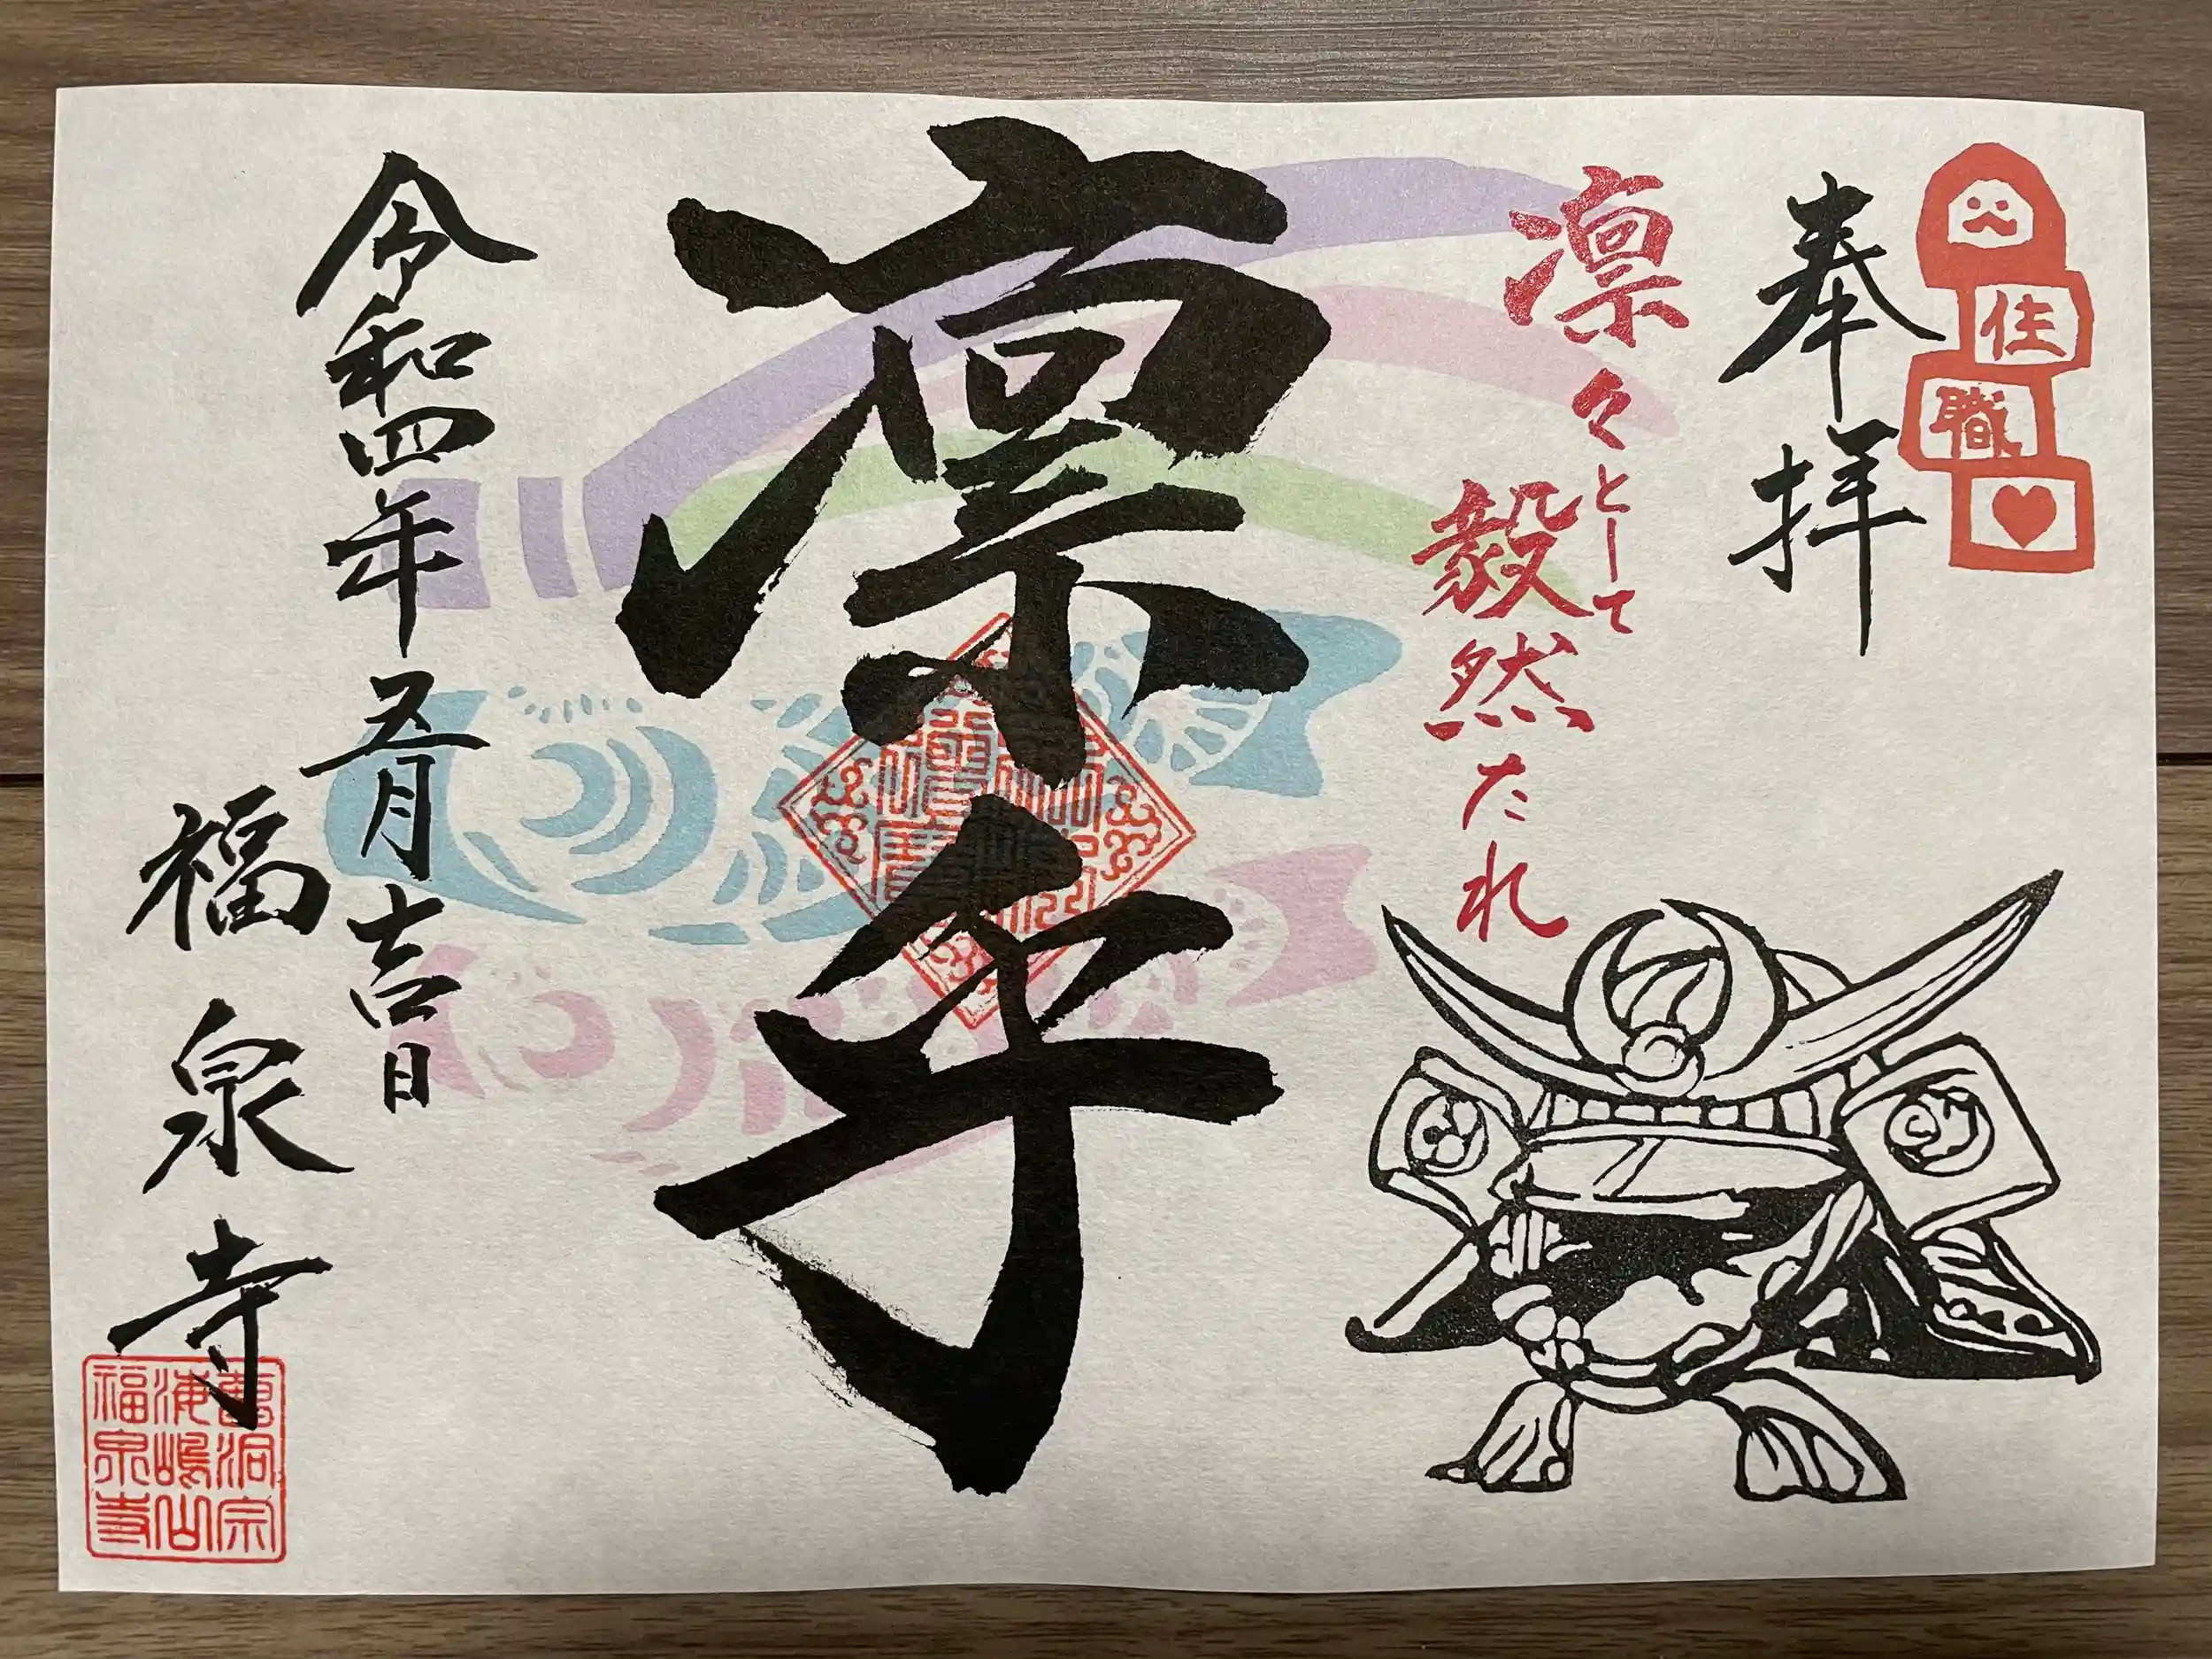 奉拝
住職
凛々として
毅然たれ
凛乎
令和四年五月吉日
福泉寺
曹洞宗
海嶋山
福泉寺